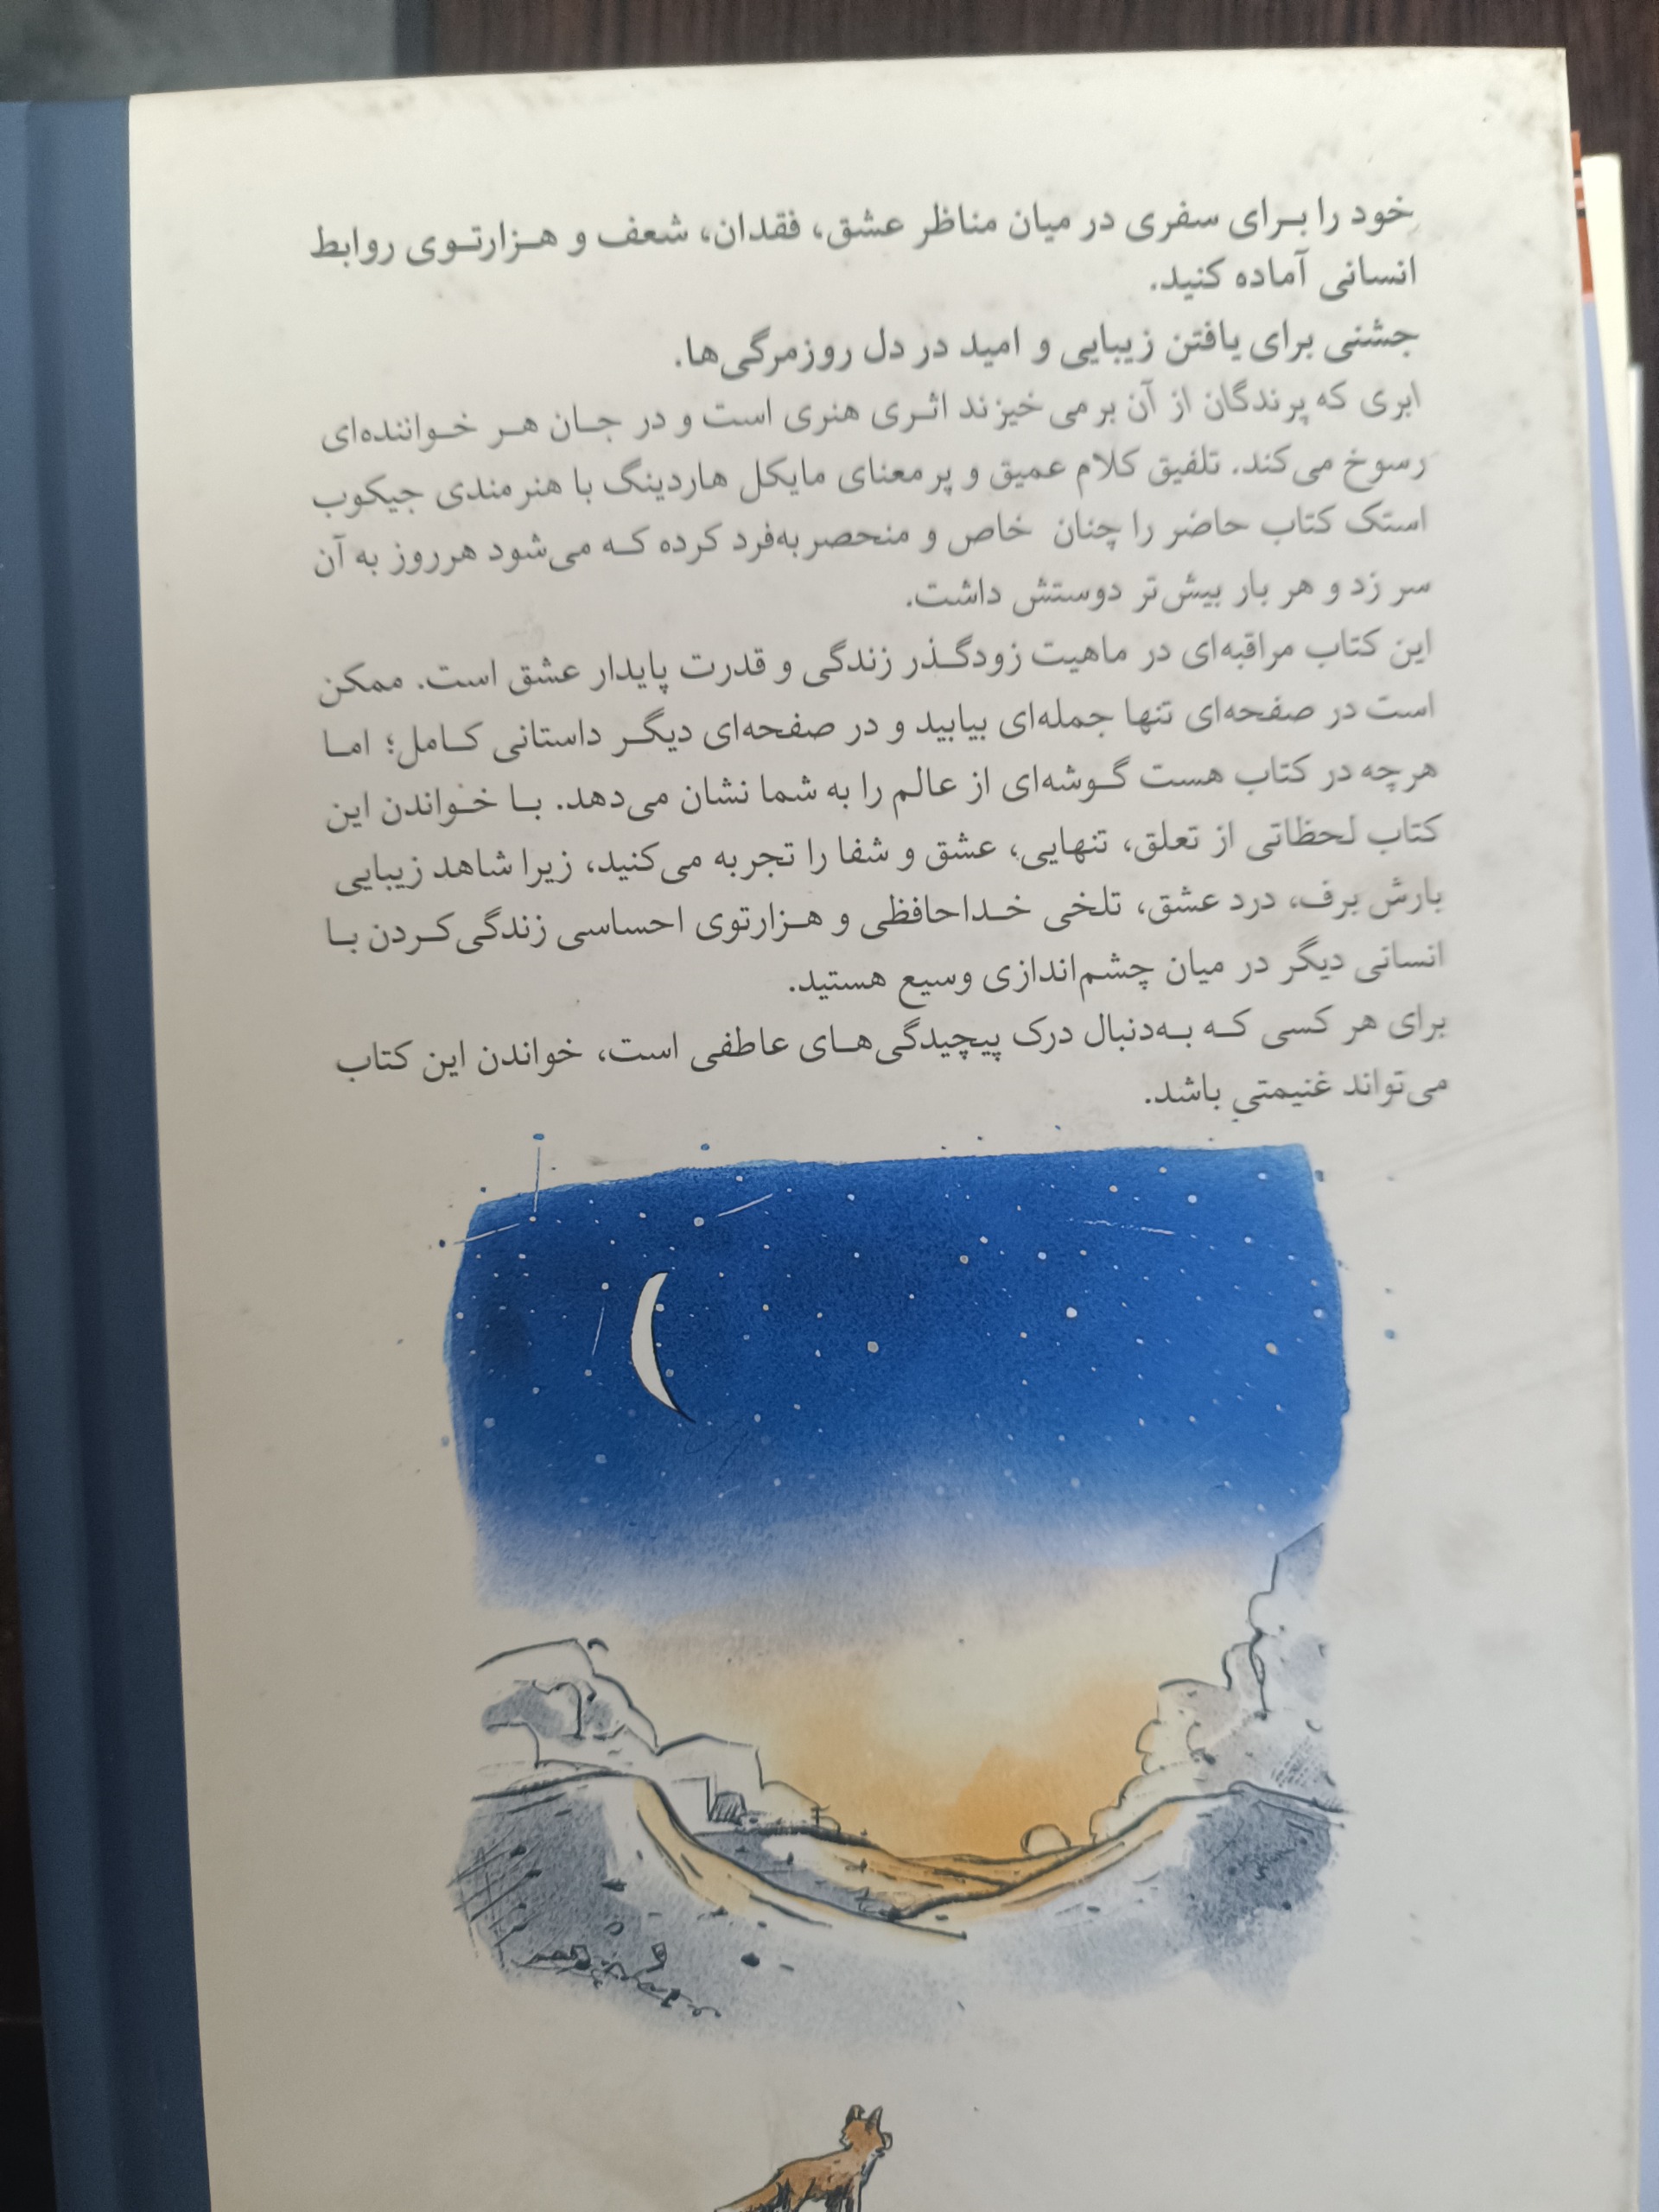 خود را برای سفری در میان مناظر عشق، فقدان، شعف و هزارتوی روابط
انسانی آماده کنید.
جشنی برای یافتن زیبایی و امید در دل روزمرگی‌ها.
ابری که پرندگان از آن برمی‌خیزند اثری هنری است و در جان هر خواننده‌ای
رسوخ می‌کند. تلفیق کلام عمیق و پرمعنای مایکل هاردینگ با هنرمندی جیکوب
استک کتاب حاضر را چنان خاص و منحصربه‌فرد کرده که می‌شود هرروز به آن
سر زد و هر بار بیش‌تر دوستش داشت.
این کتاب مراقبه‌ای در ماهیت زودگذر زندگی و قدرت پایدار عشق است. ممکن
است در صفحه‌ای تنها جمله‌ای بیابید و در صفحه‌ای دیگر داستانی کامل؛ اما
هرچه در کتاب هست گوشه‌ای از عالم را به شما نشان می‌دهد. با خواندن این
کتاب لحظاتی از تعلق، تنهایی، عشق و شفا را تجربه می‌کنید، زیرا شاهد زیبایی
بارش برف، درد عشق، تلخی خداحافظی و هزارتوی احساسی زندگی‌کردن با
انسانی دیگر در میان چشم‌اندازی وسیع هستید.
برای هر کسی که به‌دنبال درک پیچیدگی‌های عاطفی است، خواندن این کتاب
می‌تواند غنیمتی باشد.